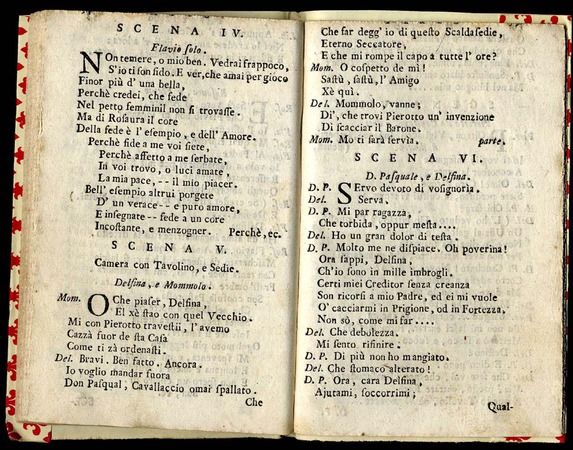 SCENA IV.
Flavio ſolo.
NOn temere, o mio ben. Vedrai frappoco,
S'io ti ſon fido. E ver, che amai per gioco
Finor più d' una bella,
Perchè credei, che fede
Nel petto femminil non ſi trovaſſe.
Ma di Roſaura il core
Della fede è l' eſempio, e dell' Amore.
Perchè fide a me voi ſiete,
Perchè affetto a me ſerbate,
In voi trovo, o luci amate,
La mia pace, -- il mio piacer.
Bell' eſempio altrui porgete
D' un verace -- e puro amore,
E inſegnate -- fede a un core
Incoſtante, e menzogner. Perchè, ec.
SCENA V.
Camera con Tavolino, e Sedie.
Delfina, e Mommolo.
Mom. O Che piaſer, Delfina,
El xè ſtao con quel Vecchio.
Mi con Pierotto traveſtii, l' avemo
Cazzà fuor de ſta Caſa
Come ti zà ordenaſti.
Del. Bravi. Ben fatto. Ancora.
Io voglio mandar fuora
Don Paſqual, Cavallaccio omai ſpallato.
Che
Che far degg' io di queſto Scaldaſedie,
Eterno Seccatore,
E che mi rompe il capo a tutte l' ore?
Mom. O coſpetto de mì!
Saſtù, ſaſtù, l' Amigo
Xè quì.
Del. Mommolo, vanne;
Dì', che trovi Pierotto un' invenzione
Di ſcacciar il Barone.
Mom. Mo ti ſarà ſervìa. parte.
SCENA VI.
D. Paſquale, e Delfina.
D. P. SErvo devoto di voſignoria.
Del. Serva.
D. P. Mi par ragazza,
Che torbida, oppur meſta....
Del. Ho un gran dolor di teſta.
D. P. Molto me ne diſpiace. Oh poverina!
Ora ſappi, Delfina,
Ch'io ſono in mille imbrogli.
Certi miei Creditor ſenza creanza
Son ricorſi a mio Padre, ed ei mi vuole
O' cacciarmi in Prigione, od in Fortezza,
Non sò, come mi far....
Del. Che debolezza.
Mi ſento rifinire.
D. P. Di più non ho mangiato.
Del. Che ſtomaco alterato!
D. P. Ora, cara Delfina,
Ajutami, ſoccorrimi;
Qual-